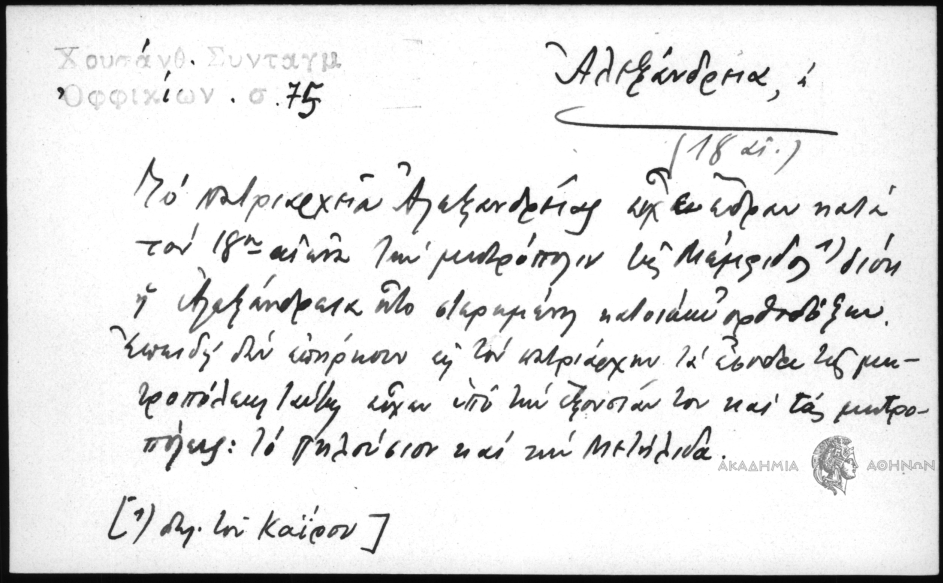 Χρυσάνθ. Συνταγμ
Ὀφφικίων. σ. 75
Ἀλεξάνδρεια, ἡ
(18 αἰ.)
Τὸ πατριαρχεῖον Ἀλεξανδρείας εἶχεν ἕδραν κατὰ
τὸν 18ον αἰῶνα τὴν μητρόπολιν τῆς Μέμφιδος 1) διότι
ἡ Ἀλεξάνδρεια ἦτο στερημένη κατοίκων ὀρθοδόξων.
Ἐπειδὴ δὲν ἐπήρκουν εἰς τὸν πατριάρχην τὰ ἔσοδα τῆς μη-
τροπόλεως ταύτης εἶχεν ὑπὸ τὴν ἐξουσίαν του καὶ τὰς μητρο-
πόλεις: τὸ Πηλούσιον καὶ τὴν Μετήλιδα.
[1) δηλ. τοῦ Καΐρου]
ΑΚΑΔΗΜΙΑ ΑΘΗΝΩΝ